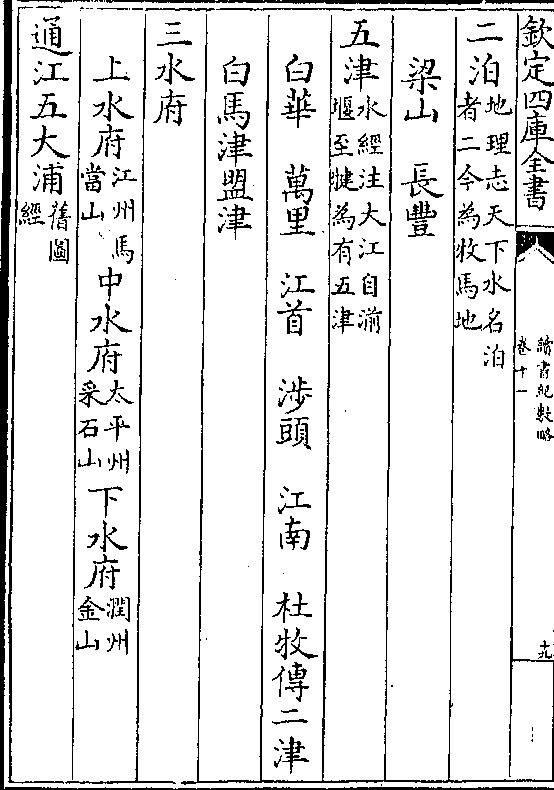 欽定四庫全書
讀書紀數略
卷十一
十九
二泊地理志天下水名泊
者二今為牧馬地
梁山　長豐
五津水經注大江自湔
堰至犍為有五津
白華　萬里　江首　涉頭　江南　杜牧傳二津
白馬津盟津
三水府
上水府江州馬當山　中水府太平州采石山　下水府潤州金山
通江五大浦舊圖
經